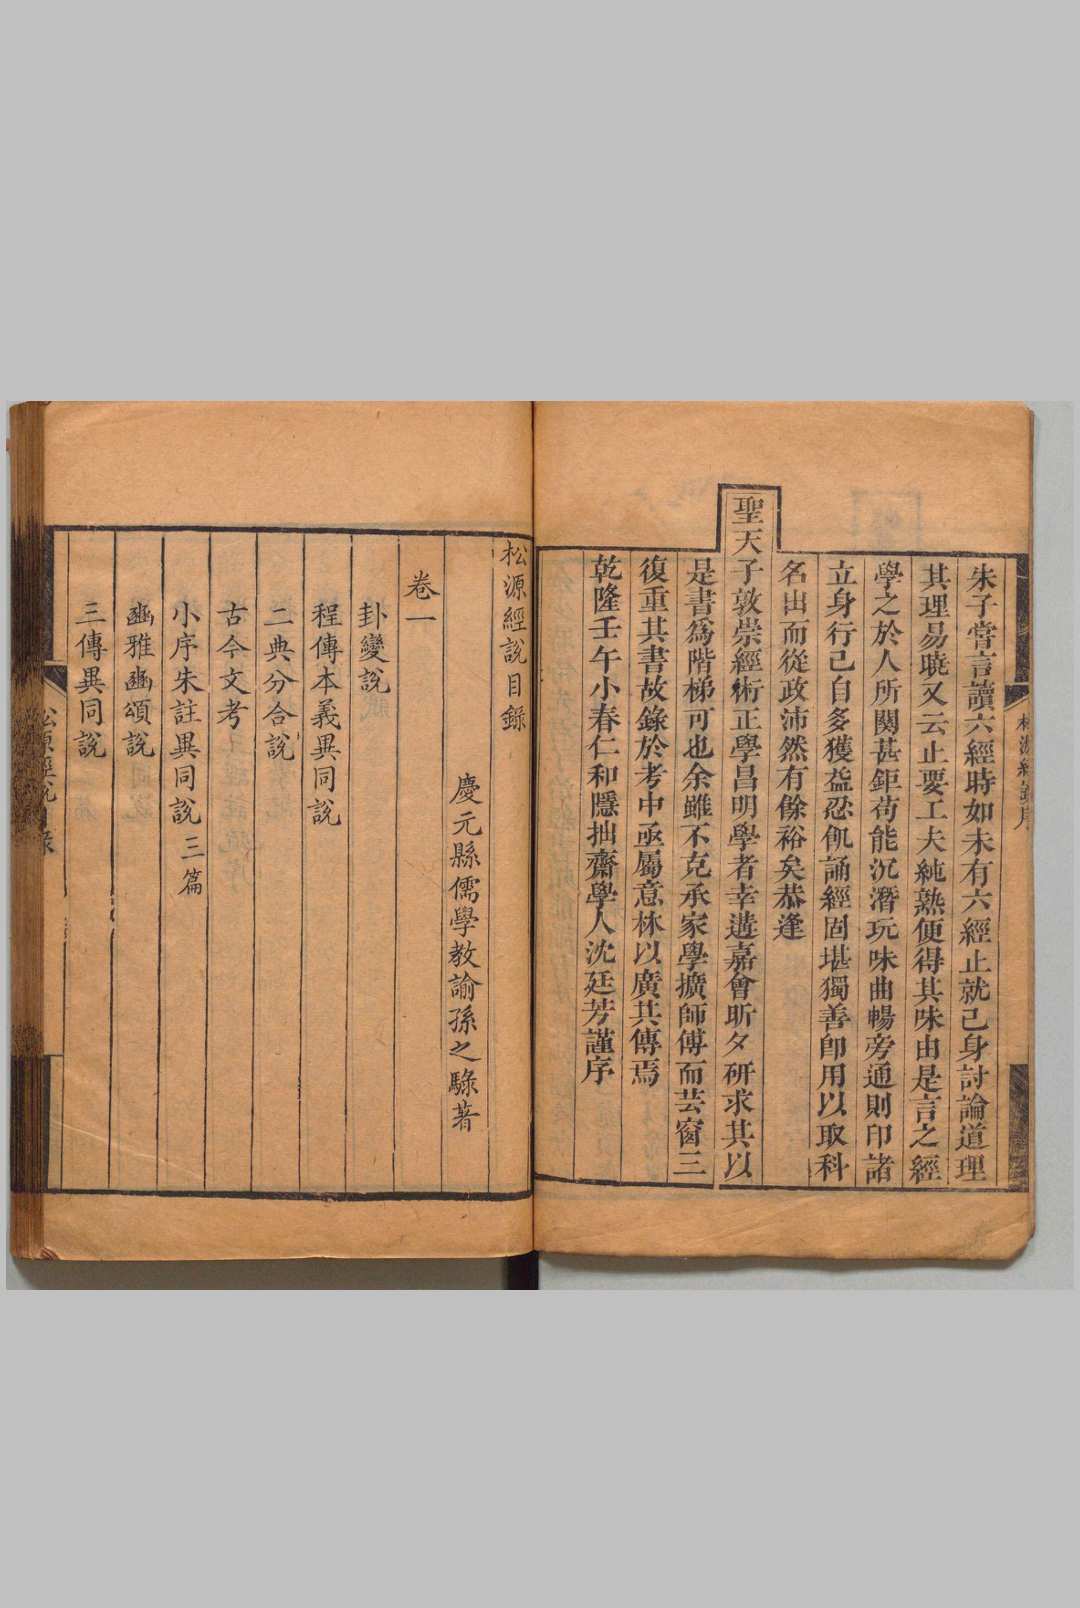 朱子嘗言讀六經時如未有六經止就己身討論道理
其理易曉又云止要工夫純熟便得其味由是言之經
學之於人所關甚鉅苟能沉潛玩味曲暢旁通則印諸
立身行己自多獲益忍飢誦經固堪獨善卽用以取科
名出而從政沛然有餘裕矣恭逢
聖天子敦崇經術正學昌明學者幸遘嘉會昕夕研求其以
是書爲階梯可也余雖不克承家學擴師傅而芸窗三
復重其書故錄於考中亟屬意林以廣其傳焉
乾隆壬午小春仁和隱拙齋學人沈廷芳謹序
松源經說目錄
慶元縣儒學教諭孫之騄著
卷一
卦變說
程傳本義異同說
二典分合說
古今文考
小序朱註異同說 三篇
豳雅豳頌說
三傳異同說
松源經說目錄